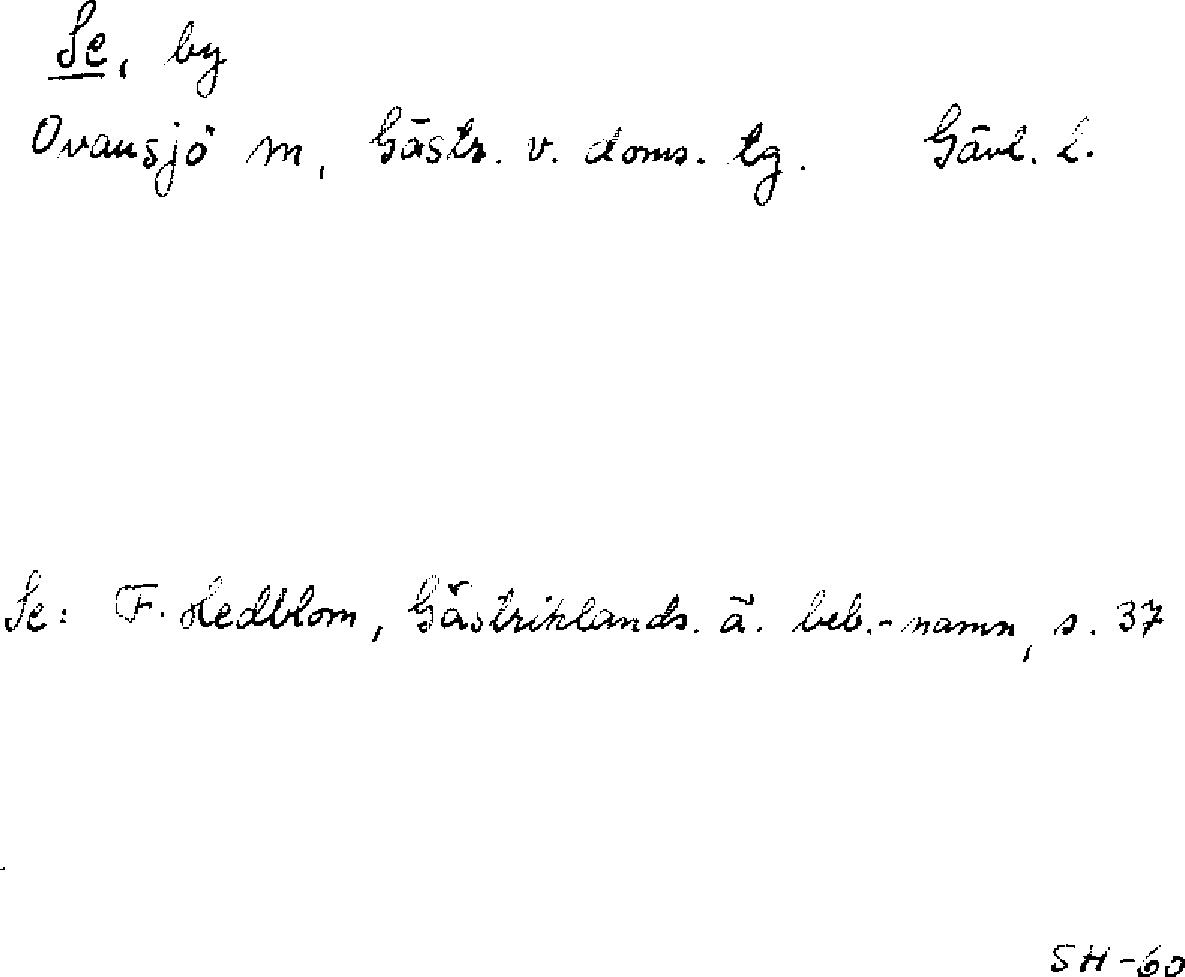 Se, by
Ovansjö sn, Gästr. v. doms. tg. Gävl. l.
Se: F. Hedblom, Gästriklands. ä. beb.-namn, s. 37
SH-60